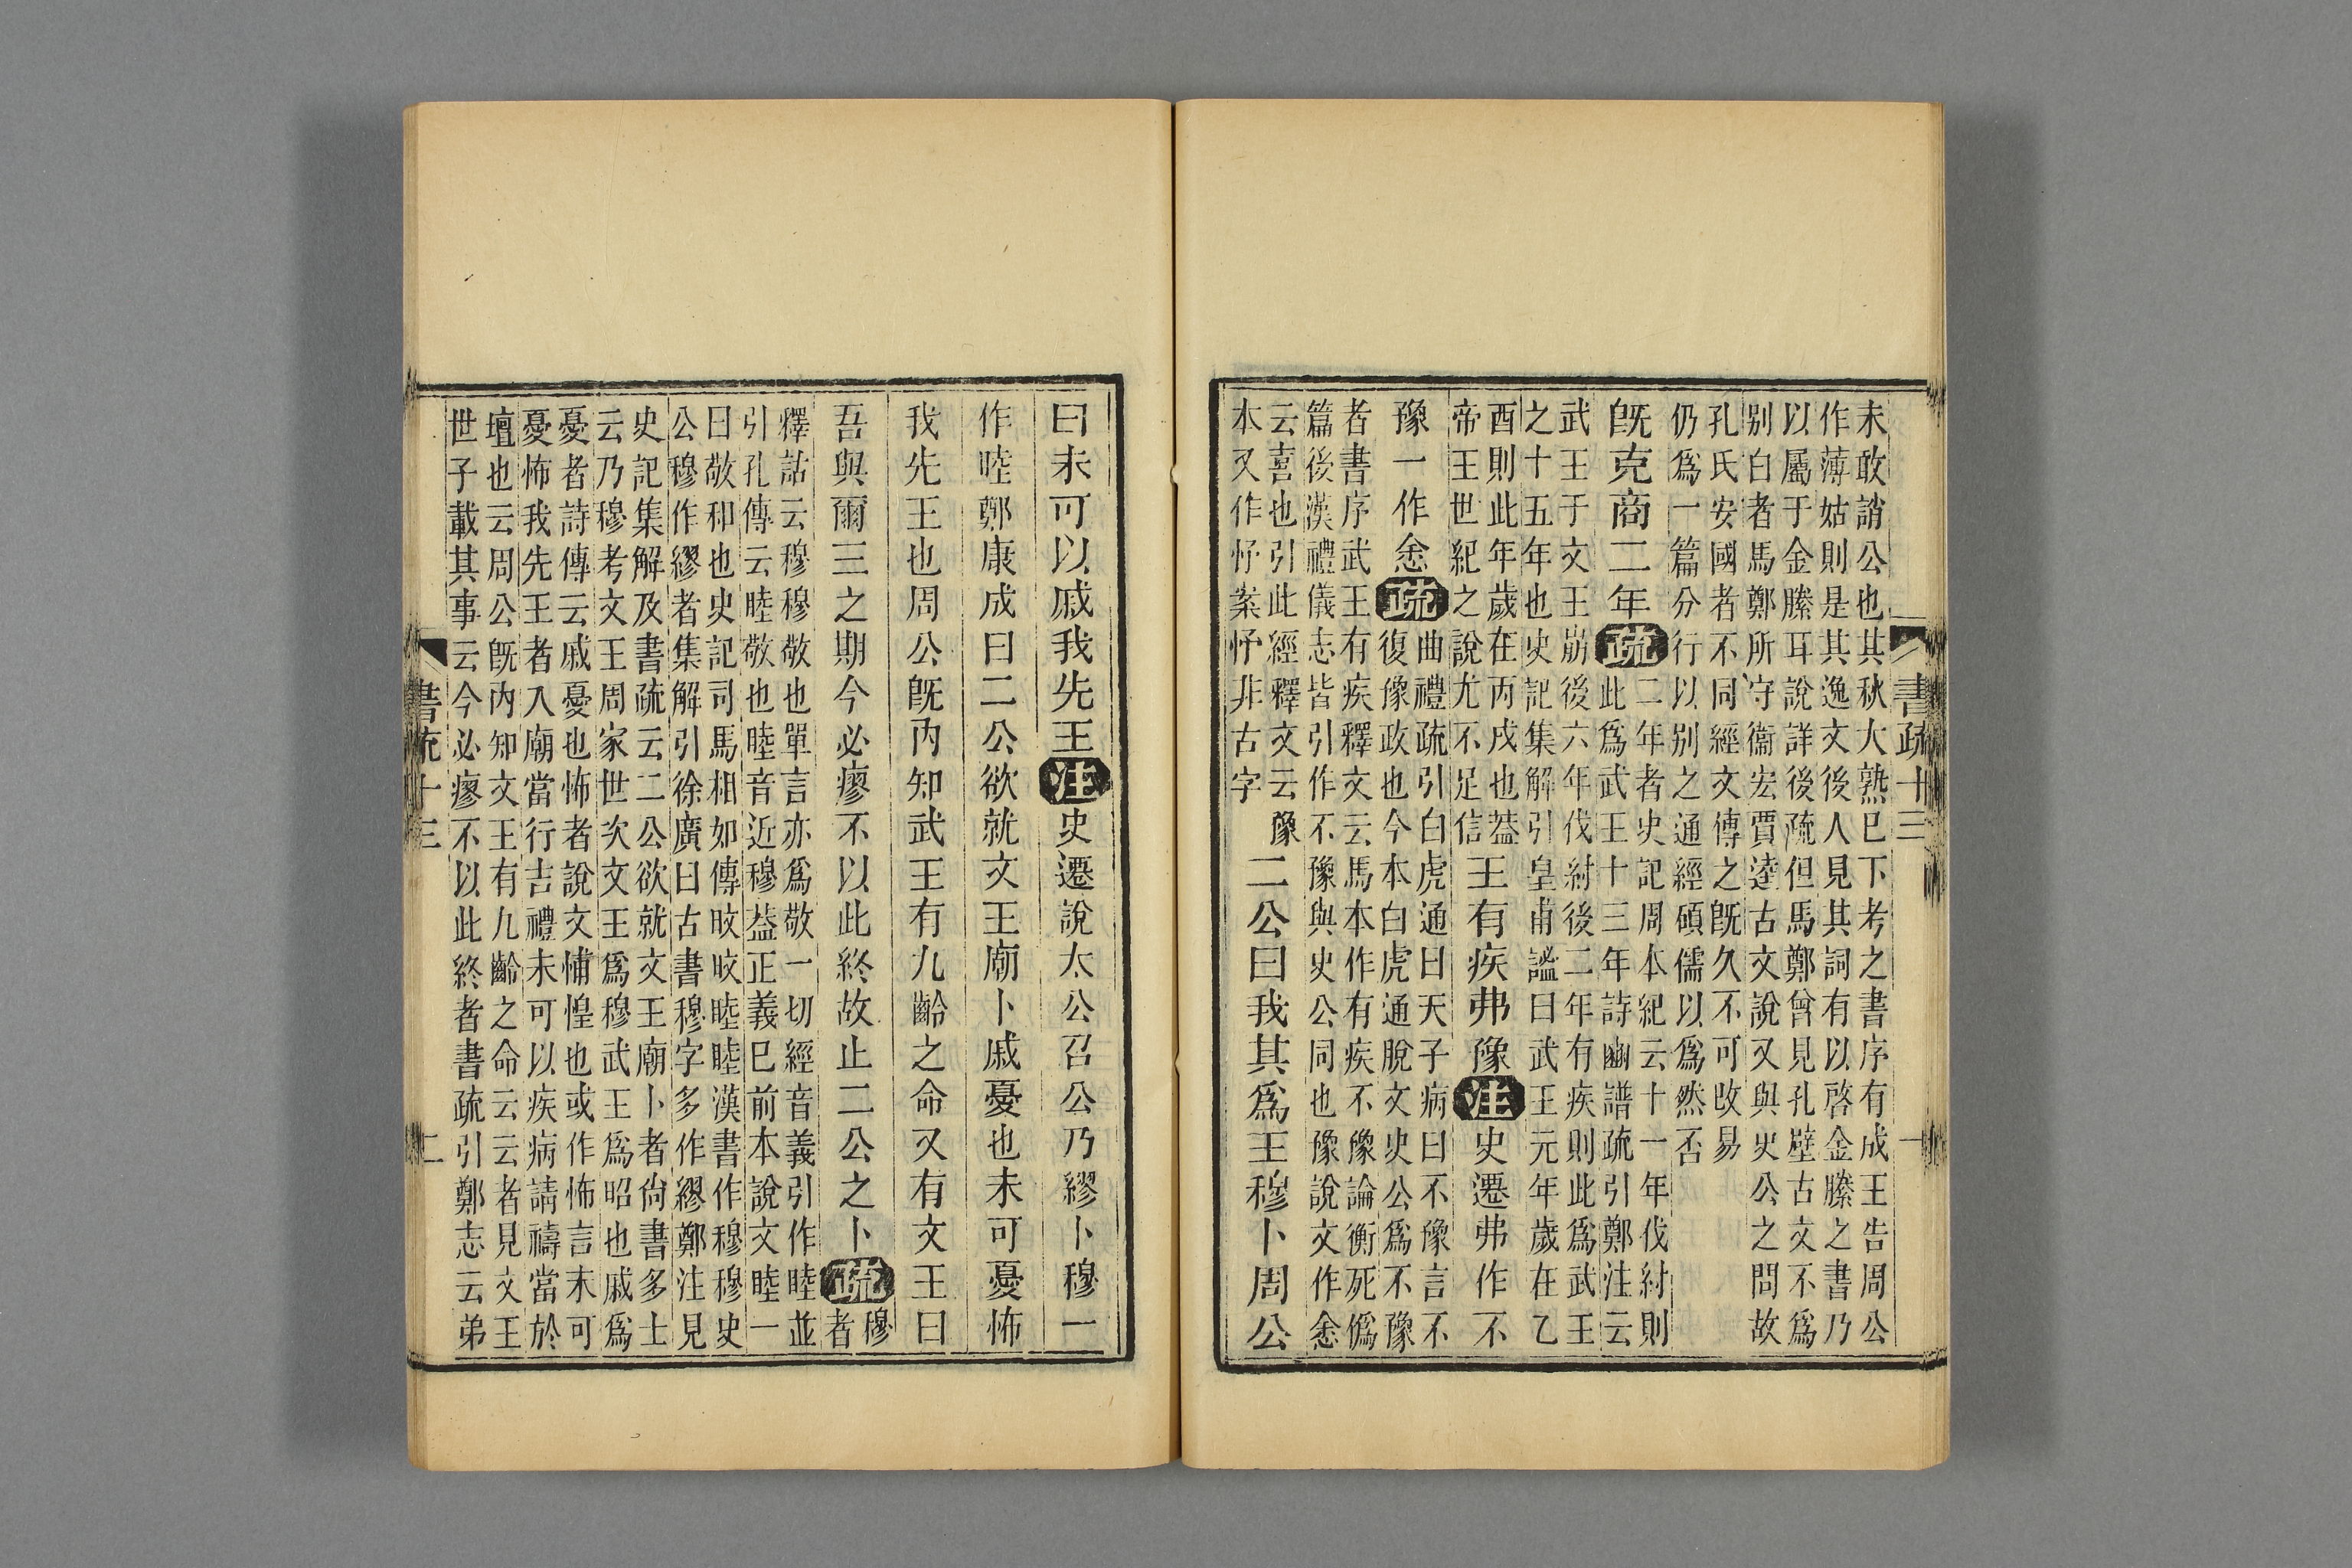 未敢誚公也其秋大熟巳下考之書序有成王告周公
作薄姑則是其逸文後人見其詞有以啓金縢之書乃
以屬于金縢耳說詳後疏但馬鄭曾見孔壁古文不爲
别白者馬鄭所守衞宏賈逵古文說又與史公之問故
孔氏安國者不同經文傳之旣久不可攺易
仍爲一篇分行以别之通經碩儒以爲然否
旣克商二年疏
二年者史記周本紀云十一年伐紂則
此爲武王十三年詩豳譜疏引鄭注云
武王于文王崩後六年伐紂後二年有疾則此爲武王
之十五年也史記集解引皇甫謐曰武王元年歲在乙
酉則此年歲在丙戌也葢
帝王世紀之說尤不足信
王有疾弗豫注史遷弗作不
豫一作悆疏
曲禮疏引白虎通曰天子病曰不豫言不
復豫政也今本白虎通脫文史公爲不豫
者書序武王有疾釋文云馬本作有疾不豫論衡死僞
篇後漢禮儀志皆引作不豫與史公同也豫說文作悆
云喜也引此經釋文云豫
本又作忬案忬非古字
二公曰我其爲王穆卜周公
書疏十三
一
曰未可以戚我先王注史遷說太公召公乃繆卜穆一
作睦鄭康成曰二公欲就文王廟卜戚憂也未可憂怖
我先王也周公旣内知武王有九齡之命又有文王曰
吾與爾三之期今必瘳不以此終故止二公之卜疏
穆
者
釋詁云穆穆敬也單言亦爲敬一切經音義引作睦並
引孔傳云睦敬也睦音近穆葢正義巳前本說文睦一
曰敬和也史記司馬相如傳旼旼睦睦漢書作穆穆史
公穆作繆者集解引徐廣曰古書穆字多作繆鄭注見
史記集解及書疏云二公欲就文王廟卜者尙書多士
云乃穆考文王周家世次文王爲穆武王爲昭也戚爲
憂者詩傳云戚憂也怖者說文悑惶也或作怖言未可
憂怖我先王者入廟當行吉禮未可以疾病請禱當於
壇也云周公旣内知文王有九齡之命云云者見文王
世子載其事云今必瘳不以此終者書疏引鄭志云弟
書疏十三
二